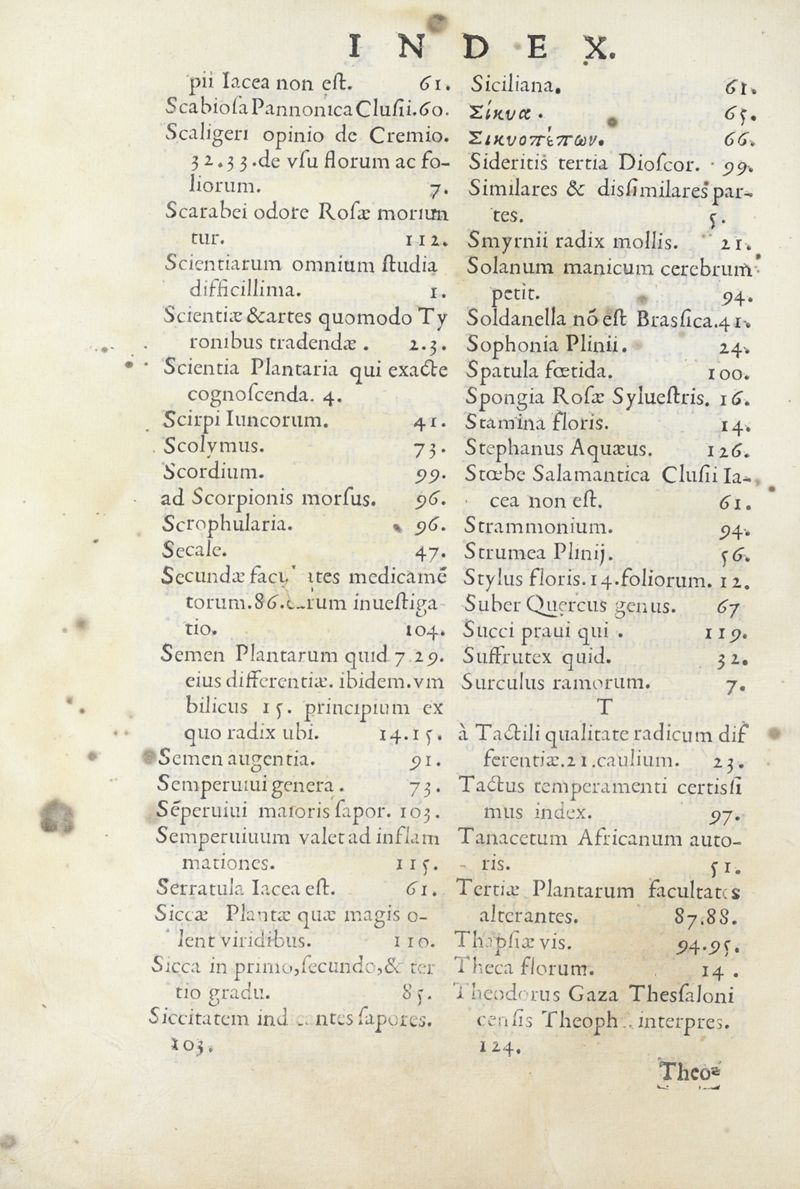 INDEX.
pii Iacea non eſt. 61.
Scabioſa Pannonica Cluſii. 60.
Scaligeri opinio de Cremio.
32.33. de vſu florum ac fo-
liorum. 7.
Scarabei odore Roſæ moriun
tur. 112.
Scientiarum omnium ſtudia
difficillima. 1.
Scientiæ & artes quomodo Ty
ronibus tradendæ. 2.3.
Scientia Plantaria qui exacte
cognoſcenda. 4.
Scirpi Iuncorum. 41.
Scolymus. 73.
Scordium. 99.
ad Scorpionis morſus. 96.
Scrophularia. 96.
Secale. 47.
Secundæ medicamē
torum. 86. inueſtiga
tio. 104.
Semen Plantarum quid 7.29.
eius differentiæ. ibidem. vm
bilicus 15. principium ex
quo radix ubi. 14.15.
Semen augentia. 91.
Semperuiui genera. 73.
Sēperuiui maioris ſapor. 103.
Semperuiuum valet ad inflam
mationes. 115.
Serratula Iacea eſt. 61.
Siccæ Plantæ quæ magis o-
lent viridibus. 110.
Sicca in primo, ſecundo, & ter
tio gradu. 85.
Siccitatem ſapores.
103.
Siciliana. 61.
Σίκυα. 65.
Σικυοπέπων. 66.
Sideritis tertia Dioſcor. 99.
Similares & disſimilares par-
tes. 5.
Smyrnii radix mollis. 21.
Solanum manicum cerebrum
petit. 94.
Soldanella nō eſt Brasſica. 41.
Sophonia Plinii. 24.
Spatula fœtida. 100.
Spongia Roſæ Sylueſtris. 16.
Stamina floris. 14.
Stephanus Aquæus. 126.
Stœbe Salamantica Cluſii Ia-
cea non eſt. 61.
Strammonium. 94.
Strumea Plinij. 56.
Stylus floris. 14. foliorum. 12.
Suber Quercus genus. 67
Succi praui qui. 119.
Suffrutex quid. 32.
Surculus ramorum. 7.
T
à Tactili qualitate radicum dif
ferentiæ. 21. caulium. 23.
Tactus temperamenti certisſi
mus index. 97.
Tanacetum Africanum auto-
ris. 51.
Tertiæ Plantarum facultates
alterantes. 87.88.
Thapſiæ vis. 94.95.
Theca florum. 14.
Theodorus Gaza Thesſaloni
cenſis Theoph. interpres.
124.
Theo-